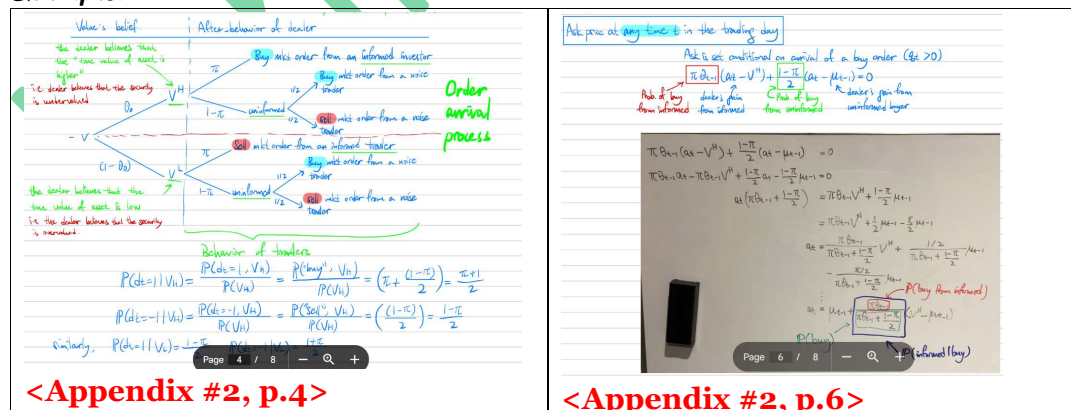 Value's belief.
After-behavior of dealer
the dealer believes that
the "true value of asset is
higher"
i.e. dealer believes that the security
is undervalued
Buy mkt order from an informed investor
Buy mkt order from a noise
trader
Sell mkt order from a noise
trader
V^H
π
1-π
uninformed
1/2
1/2
θ0
V
(1-θ0)
Order
arrival
process
Sell mkt order from an informed trader
Buy mkt order from a noise
trader
Sell mkt order from a noise
trader
V^L
π
1-π
uninformed
1/2
1/2
the dealer believes that the
true value of asset is low
i.e the dealer believes that the security
is overvalued.
Behavior of traders
P(dt=1|VH) = P(dt=1, VH)/P(VH) = P("buy", VH)/P(VH) = (π + (1-π)/2) = π+1/2
P(dt=-1|VH) = P(dt=-1, VH)/P(VH) = P("Sell", VH)/P(VH) = ((1-π)/2) = 1-π/2
similarly, P(dt=1|VL) = 1-π/2
Page 4 / 8 − +
<Appendix #2, p.4>
Ask price at any time t in the trading day
Ask is set conditional on arrival of a buy order (qt >0)
πθt-1(at - V^H) + 1-π/2 (at - μt-1) = 0
Prob. of buy
from informed
dealer's gain
from informed
Prob. of buy
from uninformed
dealer's gain from
uninformed buyer
πθt-1(at - V^H) + 1-π/2 (at - μt-1) = 0
πθt-1at - πθt-1V^H + 1-π/2 at - 1-π/2 μt-1 = 0
at(πθt-1 + 1-π/2) = πθt-1V^H + 1-π/2 μt-1
= πθt-1V^H + 1/2 μt-1 - π/2 μt-1
at = πθt-1/(πθt-1 + 1-π/2) V^H + 1/2/(πθt-1 + 1-π/2) μt-1
- π/2/(πθt-1 + 1-π/2) μt-1
P(buy from informed)
at = μt-1 + πθt-1/(πθt-1 + 1-π/2) (V^H - μt-1)
P(buy)
P(informed|buy)
Page 6 / 8 − +
<Appendix #2, p.6>